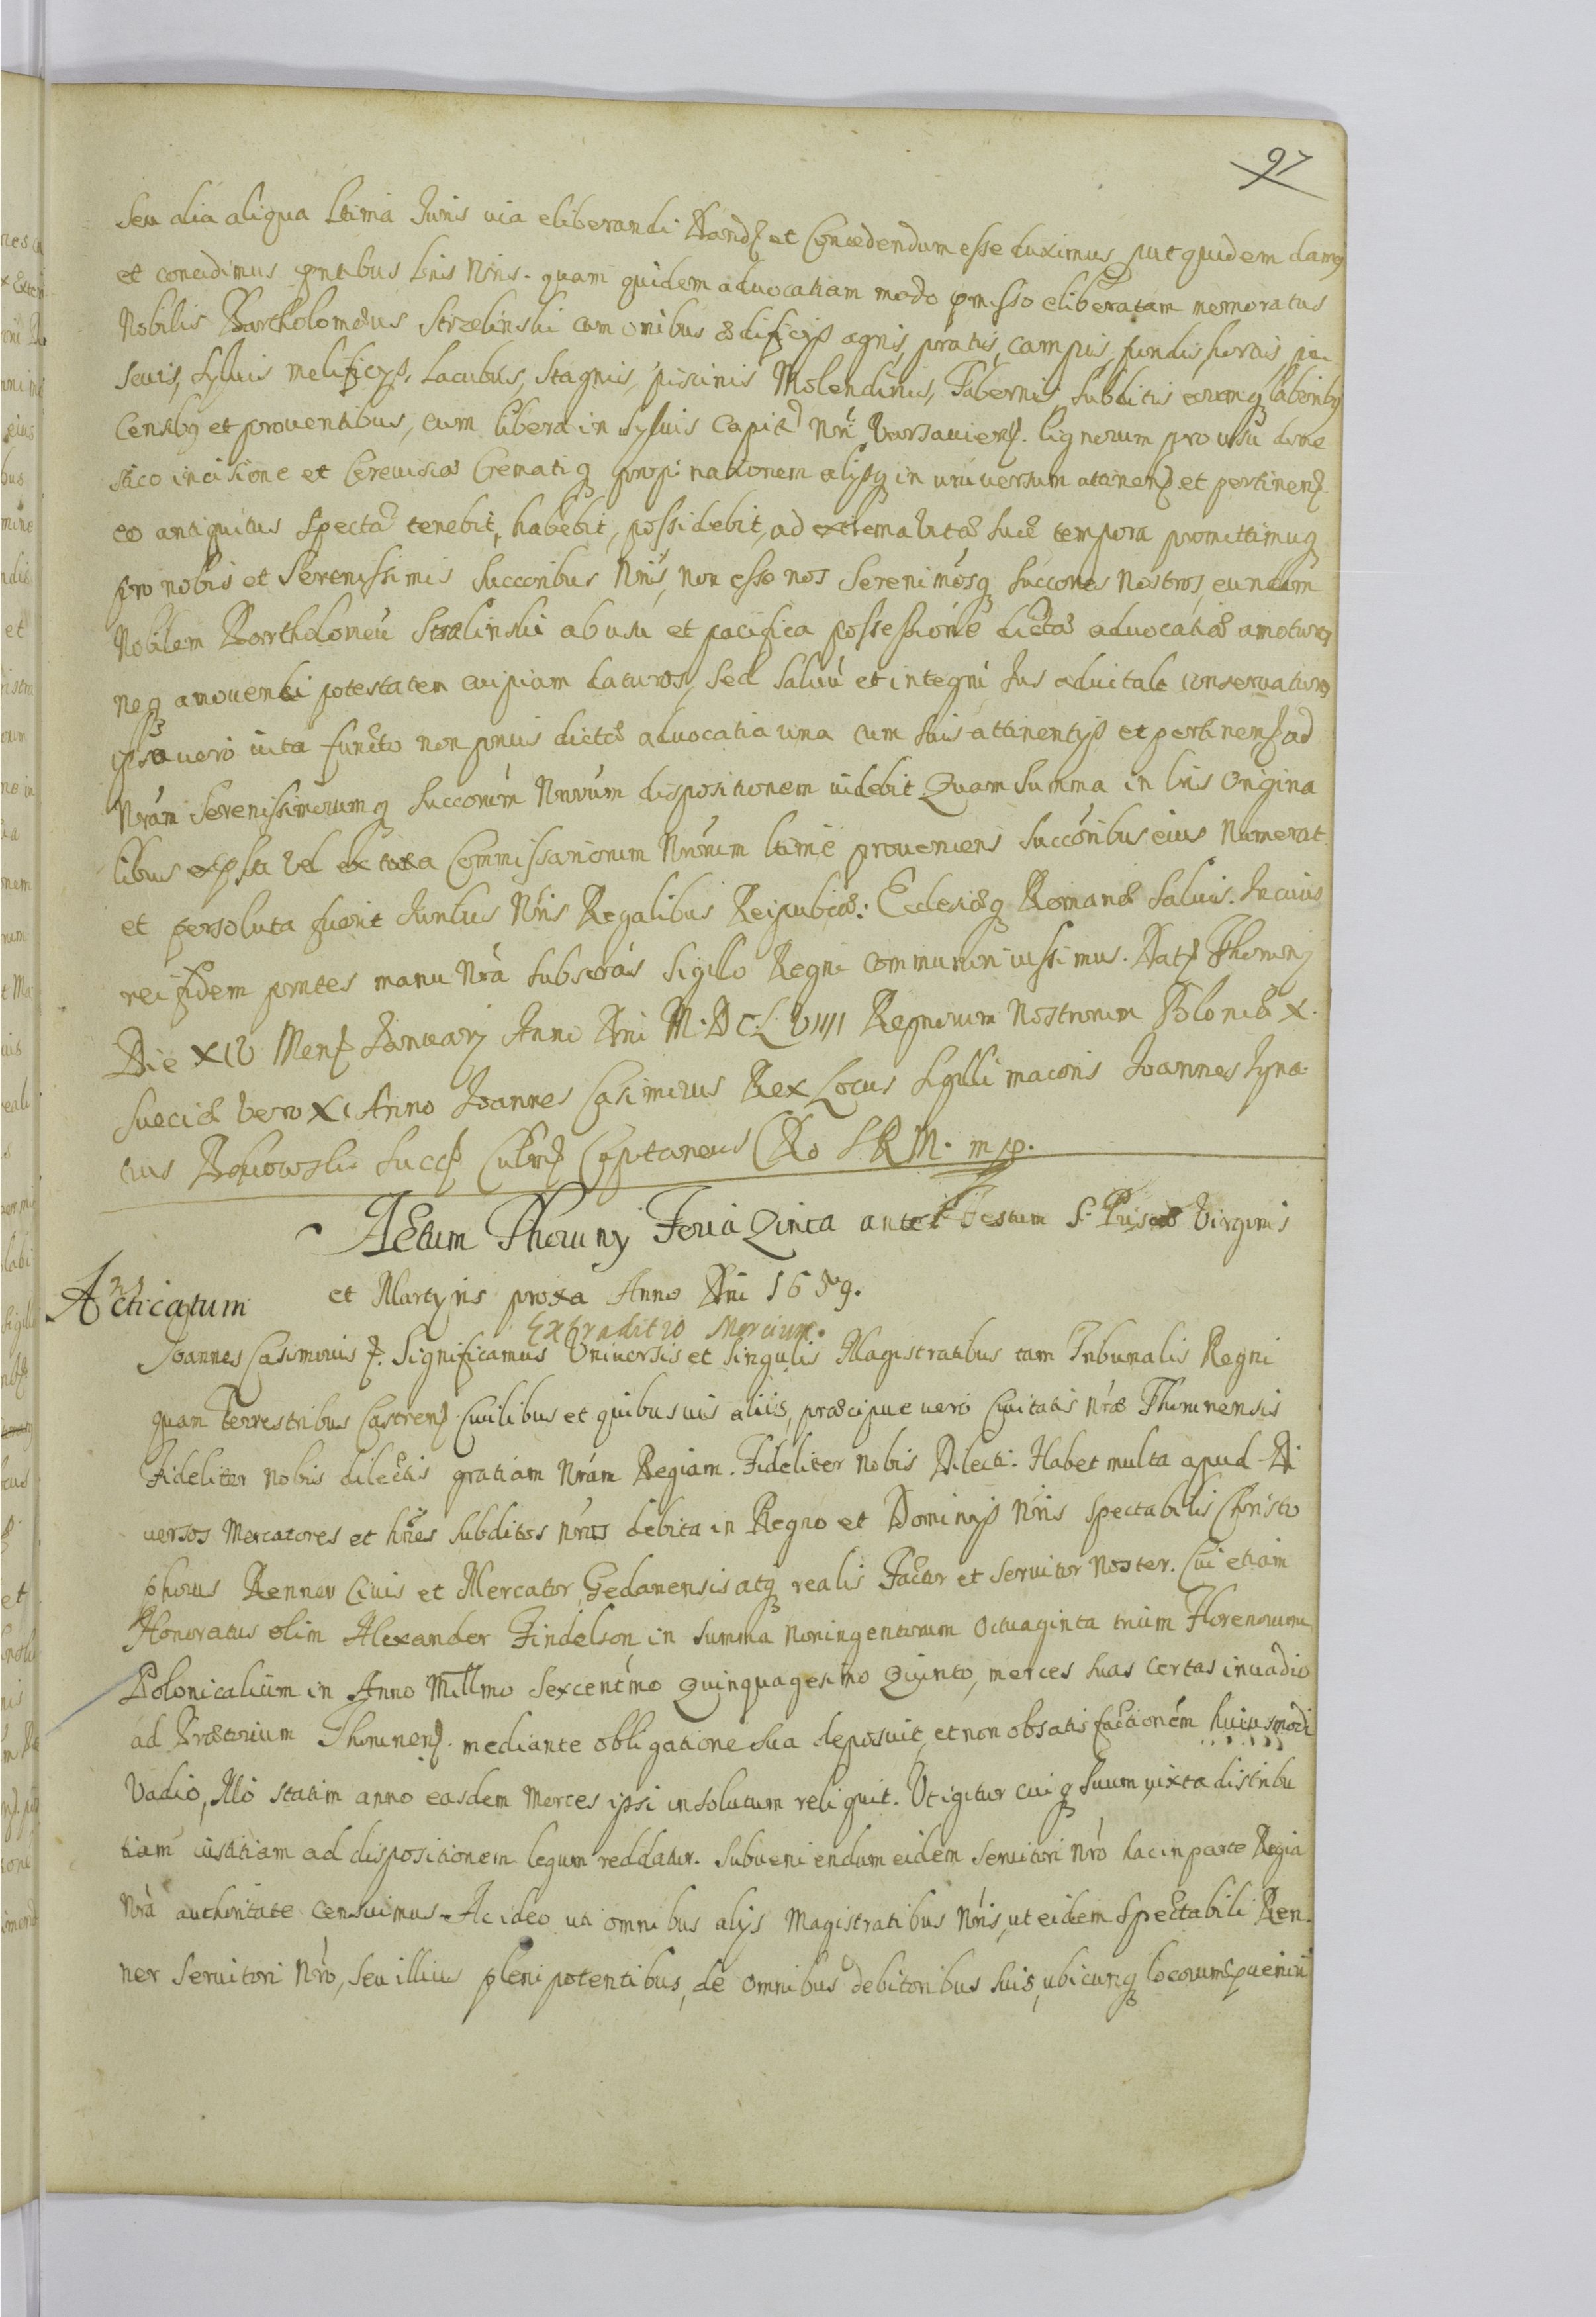 97
Seu alia aliqua ltima Juris via eliberandi Dand et Concedendum esse duximus, put quidem damus
et concedimus pntibus lris Nris. quam quidem advocatiam modo pmisso eliberatam memoratus
Nobilis Bartholomæus Strzelinski cum onibus ædificijs agris, pratis, campis, fundis hortis, pa
scuis, sylvis melificijs, Lacubus, Stagnis, piscinis Molendinis, Tabernis, Subditis eorumq laboribus
Censibus et proventibus, cum libera in sylvis Capit Nri Varsaviens. lignorum pro usu dome
stico incisione et Cerevisiæ Crematiq propinationem alijsq in universum attinen et pertinen
eo antiquitus Specta tenebit, habebit, possidebit, ad extrema vitæ suæ tempora promittimusq
pro nobis et Serenissimis Succoribus Nris, non esse nos Serenimosq Succores Nostros, eundem
Nobilem Bartholomeu Strzelinski ab usu et pacifica possessione dictæ advocatiæ amoturos
neq amovendi potestatem cuipiam daturos, sed salvu et integru Jus advitale conservaturos
ipso vero vita functo non prius dicta advocatia una cum suis attinentijs et pertinens ad
Nram Serenissimorumq Succorum Nrorum dispositionem videbit Quam Summa in lris Origina
libus expssa vel ex taxa Commissariorum Nrorum ltime proveniens Succoribus eius Numerat
et persoluta fuerit Juribus Nris Regalibus Reipublicæ: Ecclesiæq Romanæ salvis. In cuius
rei fidem pmtes manu Nra Subscras Sigillo Regni communiri iussimus. Dat Thoruny
Die XIV Mens January Anno Dni M.DC.L.VIIII Regnorum Nostrorum Poloniæ X.
Sueciæ Vero XI Anno Joannes Casimirus Rex Locus Sigilli maioris Joannes Igna
cius Bokowski Succ Culm Capitaneus S.R.M. mp.
Actum Thoruny Feria Qinta ante Festum S. Priscæ Virginis
et Martyris proxa Anno Dni 1659.
Acticatum
Extraditio Mercium.
Joannes Casimirus. Significamus Universis et Singulis Magistratibus tam Tribunalis Regni
quam Terrestribus Castrens. Civilibus et quibusvis aliis, præcipue vero Civitatis Nræ Thorunensis
Fideliter nobis dilectis gratiam Nram Regiam. Fideliter Nobis Dilecti. Habet multa apud Di
versos Mercatores et hoes Subditos Nros debita in Regno et Dominijs Nris Spectabilis Christo
phorus Renner Civis et Mercator Gedanensis atq realis Factor et Servitor Noster. Cui etiam
Honoratus olim Alexander Findelson, in Summa Noningentorum Octuaginta trium Florenorum
Polonicalium in Anno Millmo Sexcentmo Quinquagesimo Quinto, merces suas certas in vadio
ad Prætorium Thorunens. mediante obligatione sua deposuit, et non obsatisfactionem huiusmodi
Vadio, Illo statim anno easdem Merces ipsi insolutum reliquit. Ut igitur cuiq suum, iuxta distribu
tiam iustitiam ad dispositionem legum reddatur. Subveniendum eidem Servitori Nro hac in parte Regia
Nra authoritate censuimus. Ac ideo uti omnibus alijs Magistratibus Nris, ut eidem Spectabili Ren
ner Servitori Nro, Seu illius plenipotentibus, de omnibus debitoribus suis, ubicunq locorum